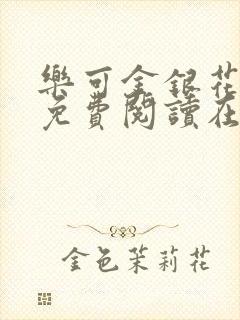 樂可金銀花
免費閱讀在
金色茉莉花